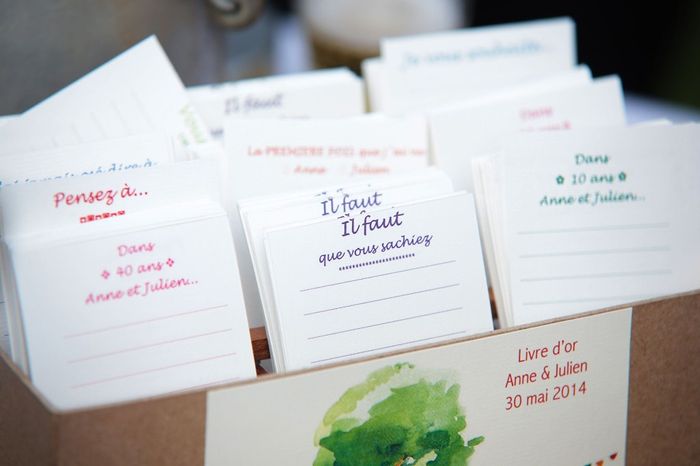 Je vous souhaite...
Il faut
Dans
La PREMIÈRE FOIS que j'ai
Anne Julien
Pensez à...
Il faut
Il faut
que vous sachiez
Dans
10 ans
Anne et Julien...
Dans
40 ans
Anne et Julien...
Livre d'or
Anne & Julien
30 mai 2014